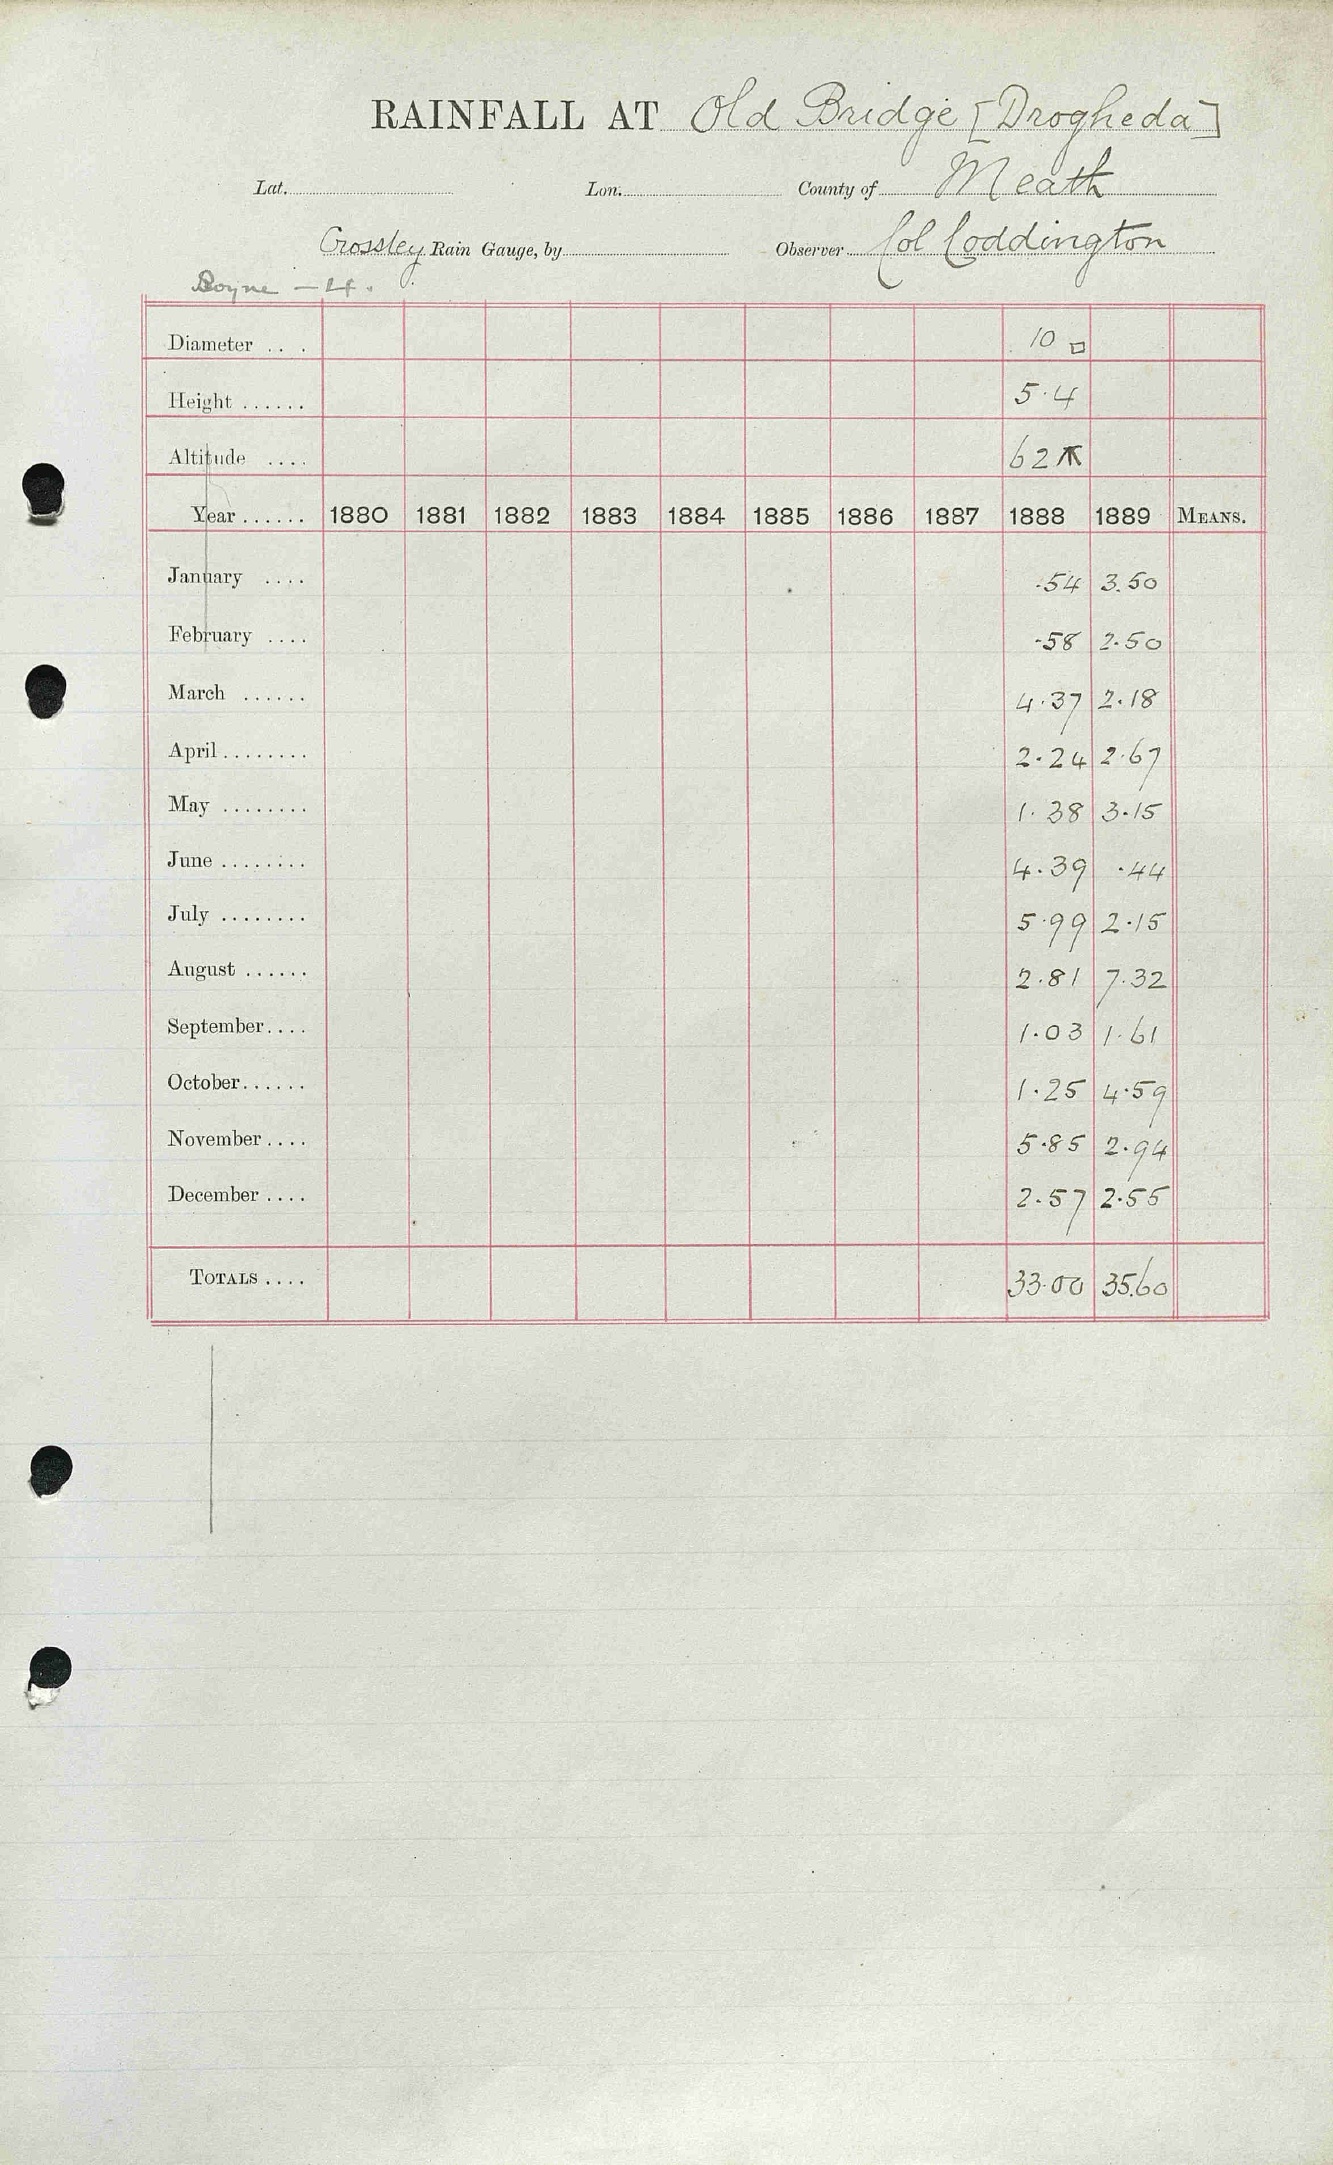 RAINFALL AT Old Bridge [Drogheda]
Lat. Lon. County of Meath
Crossley Rain Gauge, by Observer Col Coddington
Boyne - 4.
Diameter ... 10 □
Height ...... 5.4
Altitude .... 62
Year ...... 1880 1881 1882 1883 1884 1885 1886 1887 1888 1889 MEANS.
January .... .54 3.50
February .... .58 2.50
March ...... 4.37 2.18
April ........ 2.24 2.67
May ........ 1.38 3.15
June ........ 4.39 .44
July ........ 5.99 2.15
August ...... 2.81 7.32
September .... 1.03 1.61
October ...... 1.25 4.59
November .... 5.85 2.94
December .... 2.57 2.55
TOTALS .... 33.00 35.60